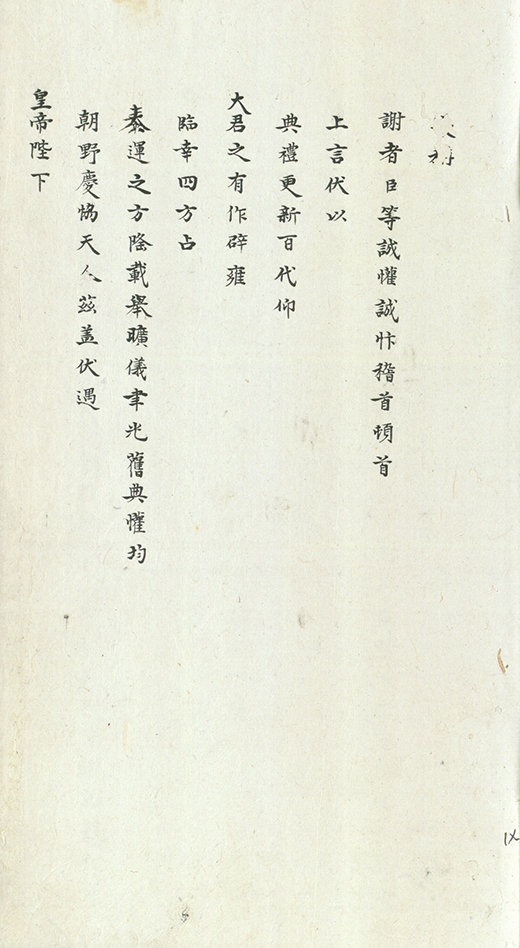 謝者臣等誠懽誠忭稽首頓首
上言伏以
典禮更新百代仰
大君之有作辟雍
臨幸四方占
泰運之方隆載舉曠儀聿光舊典懽均
朝野慶協天人茲盖伏遇
皇帝陛下